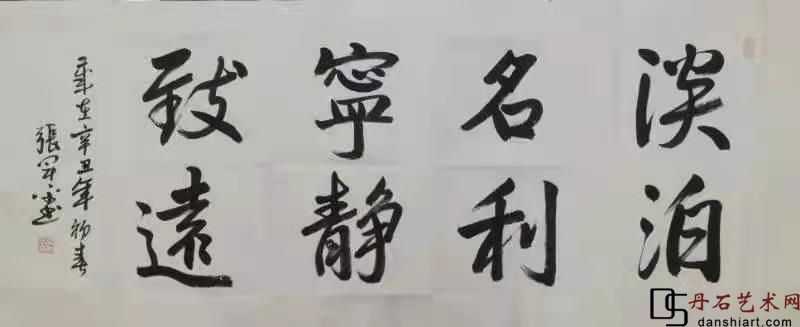 淡泊
名利
寧静
致遠
歲在辛丑年初春
張軍
丹石艺术网
danshiart.com